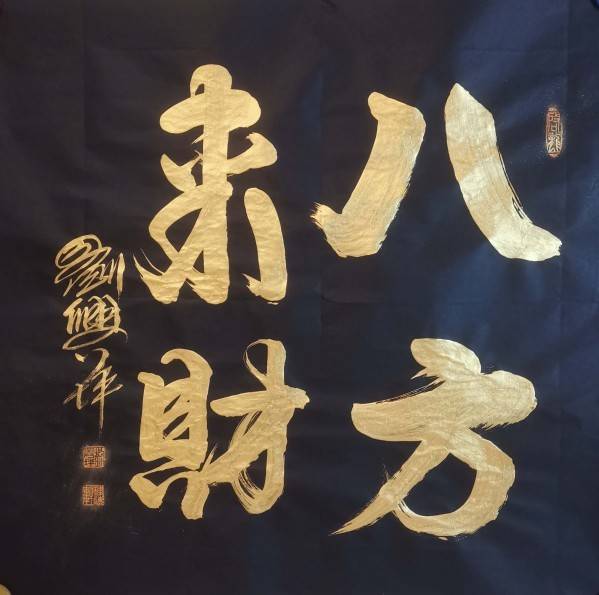 八方
來財
劉興祥